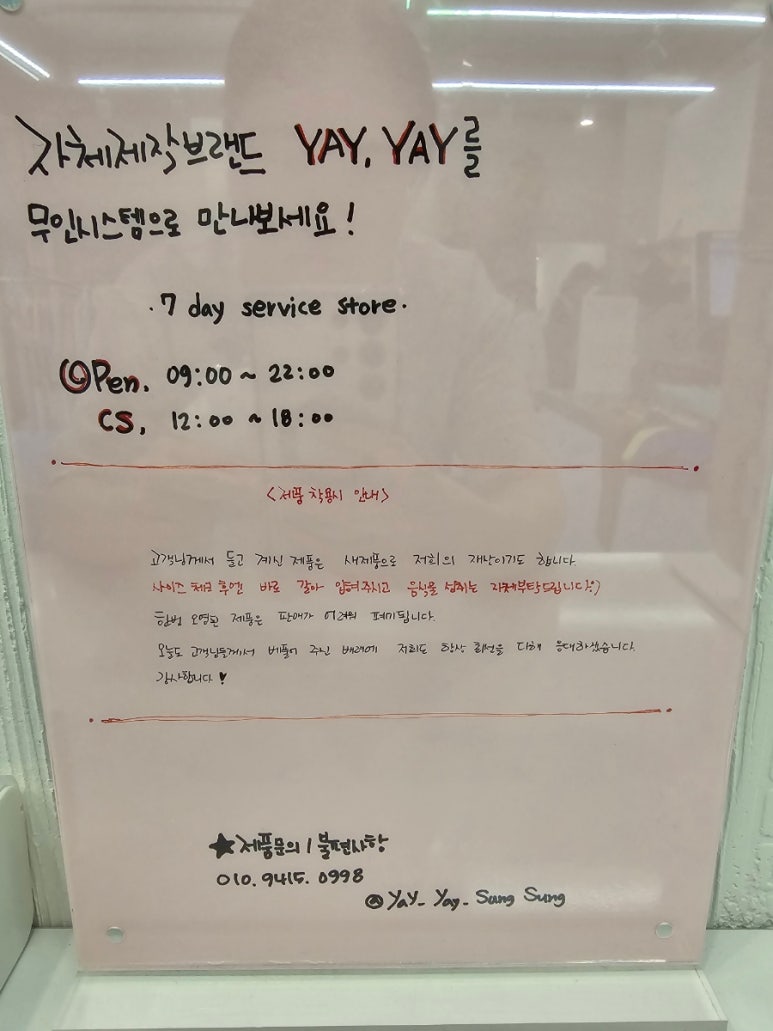 자체제작브랜드 YAY, YAY를
무인시스템으로 만나보세요!
·7 day service store·
OPen. 09:00 ~ 22:00
CS, 12:00 ~ 18:00
<제품 착용시 안내>
고객님께서 들고 계신 제품은 새제품으로 저희의 재산이기도 합니다
사이즈 체크 후엔 바로 갈아 입어주시고 음식물 섭취는 자제부탁드립니다:)
한번 오염된 제품은 판매가 어려워 폐기됩니다.
오늘도 고객님들께서 베풀어 주신 배려에 저희도 항상 최선을 다해 응대하겠습니다.
감사합니다 ♥
★제품문의 / 불편사항
010. 9415. 0998
@ YaY_ Yay_ Sung Sung